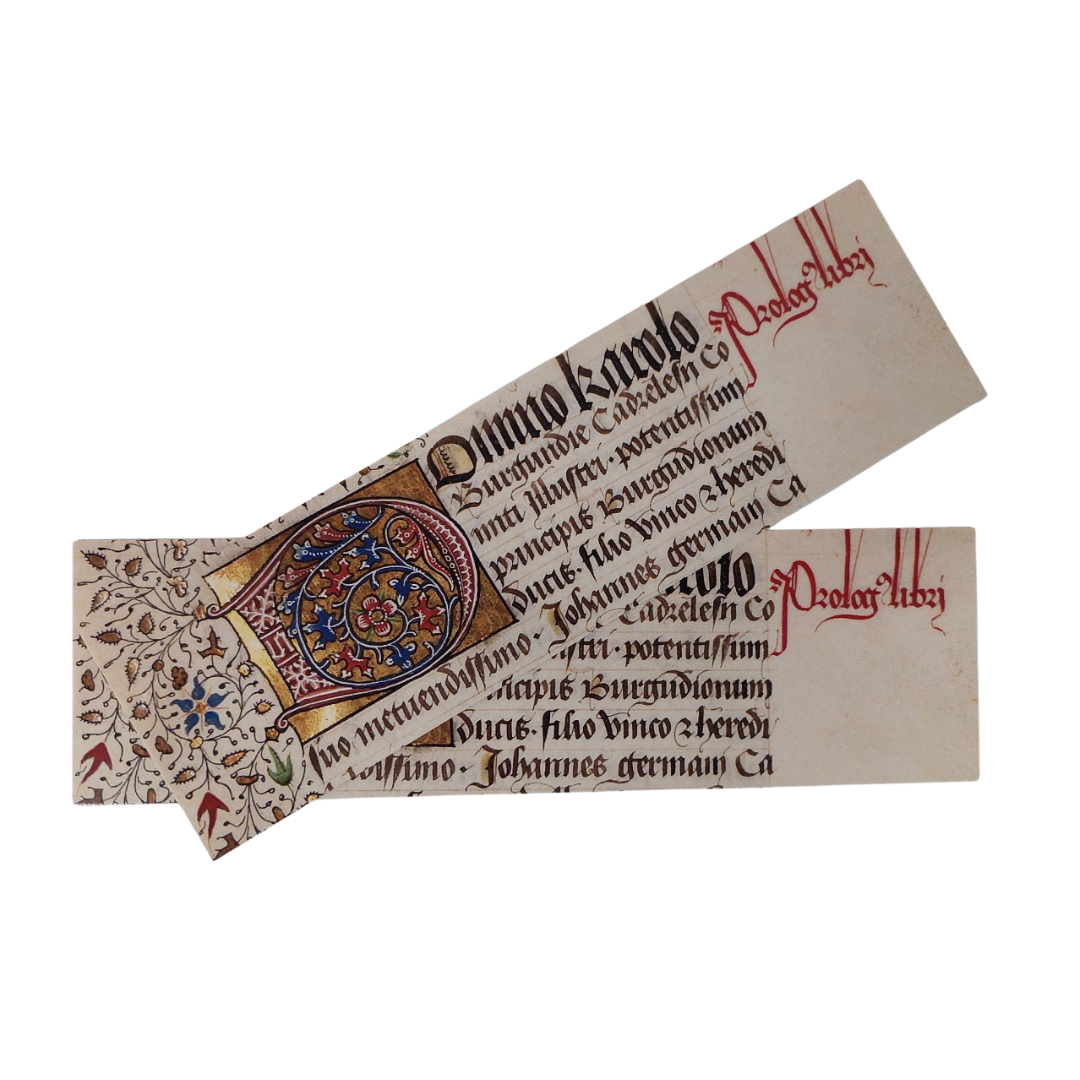 Prolog libri
DOmino karolo
Burgundie Cadrelesii Co
miti Illustri · potentissimi
principis Burgudionum
ducis · filio Vnico ⁊ heredi
suo metuendissimo · Johannes germain Ca
Prolog libri
rolo
Cadrelesii Co
stri · potentissimi
ncipis Burgudionum
ducis · filio Vnico ⁊ heredi
dissimo · Johannes germain Ca